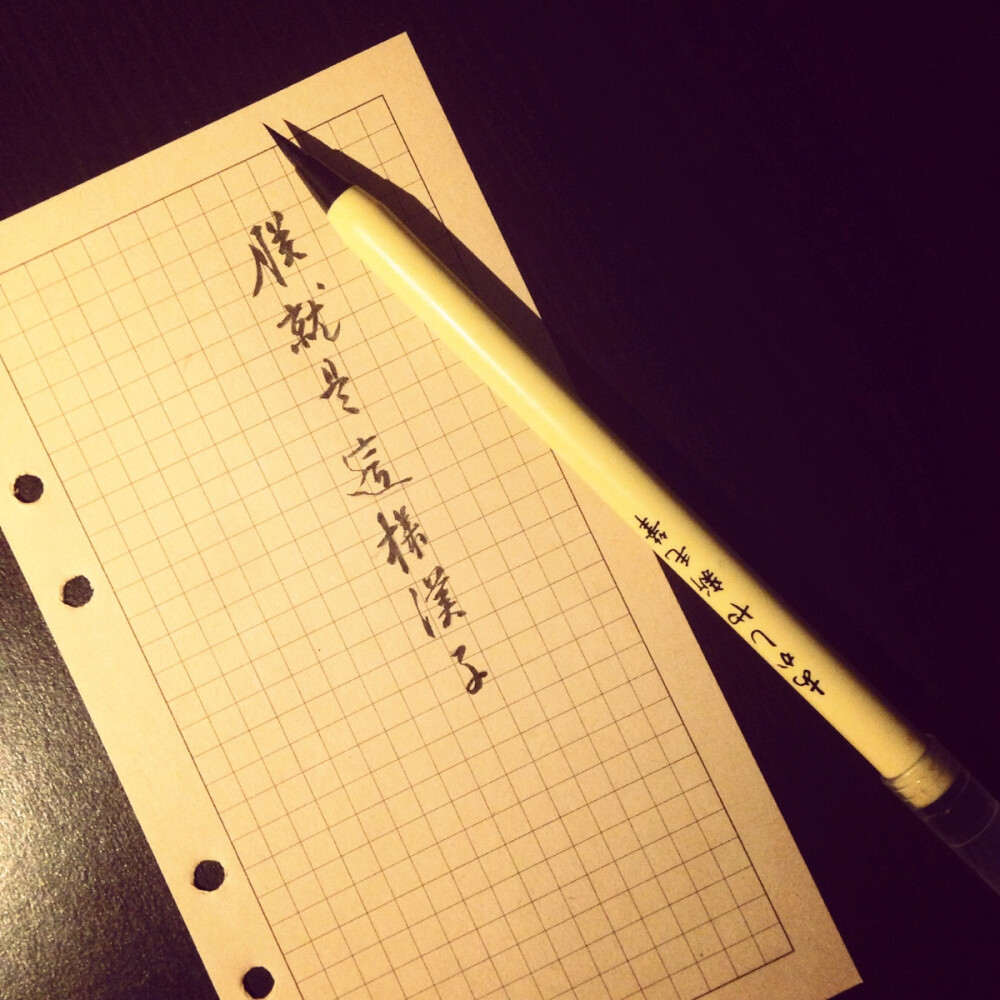 朕就是這樣漢子
あかしや新毛筆